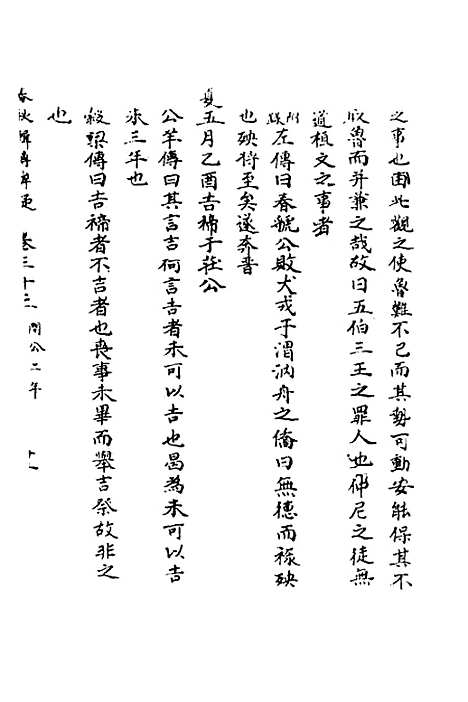 之事也固此觀之使魯難不已而其勢可動安能保其不
取魯而并兼之哉故曰五伯三王之罪人也仲尼之徒無
道桓文之事者
附錄左傳曰春虢公敗犬戎于渭汭舟之僑曰無德而祿殃
也殃將至矣遂奔晉
夏五月乙酉吉禘于莊公
公羊傳曰其言吉何言吉者未可以吉也曷為未可以吉
未三年也
穀梁傳曰吉禘者不吉者也喪事未畢而舉吉祭故非之
也
春秋輯傳辨疑 卷三十三 閔公二年 十一